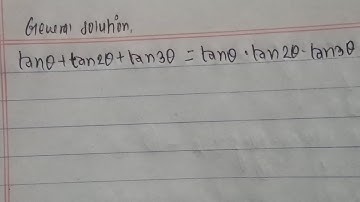 General solution,
tanθ + tan2θ + tan3θ = tanθ · tan2θ · tan3θ